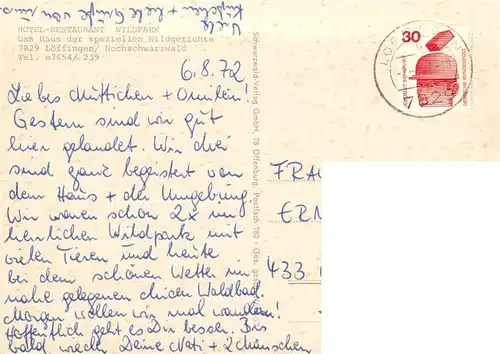 Viele
Küßchen
+ liebe Grüße von
HOTEL-RESTAURANT WILDPARK
Das Haus der speziellen Wildgerichte
7829 Löffingen/ Hochschwarzwald
Tel. 07654/ 239
6.8.72
Liebes Muttichen + Omilein!
Gestern sind wir gut
hier gelandet. Wir drei
sind ganz begeistert von
dem Haus + der Umgebung.
Wir waren schon 2x im
herrlichen Wildpark mit
vielen Tieren und heute
bei dem schönen Wetter im
nahe gelegenen Waldbad.
Morgen wollen wir mal wandern!
Hoffentlich geht es Dir besser. Bis
bald Deine Nati + 2 Mäuschen
Schwarzwald-Verlag GmbH, 76 Offenburg, Postfach 780 - Ges. gesch
30
DEUTSCHE BUNDESPOST
LÖF
FRAU
ERN
433